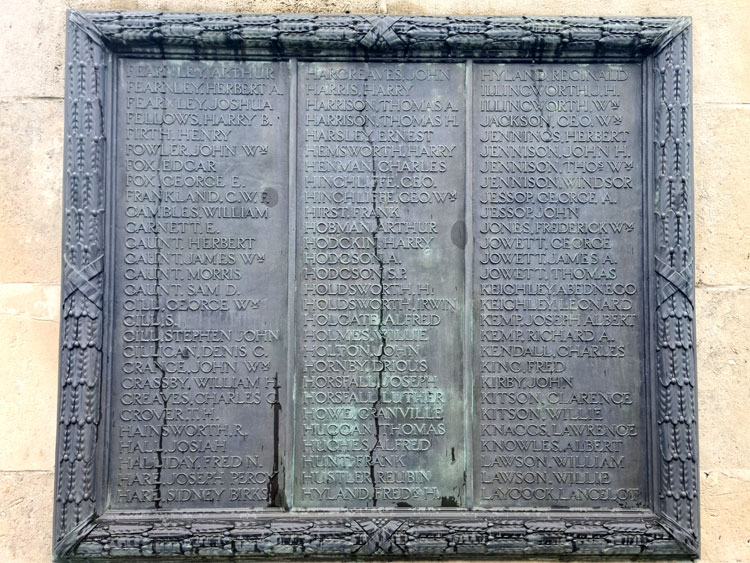 FEARNLEY, ARTHUR
FEARNLEY, HERBERT A.
FEARNLEY, JOSHUA
FELLOWS, HARRY B.
FIRTH, HENRY
FOWLER, JOHN Wᴹ
FOX, EDGAR
FOX, GEORGE E.
FRANKLAND, C.W.F.
GAMBLES, WILLIAM
GARNETT, E.
GAUNT, HERBERT
GAUNT, JAMES Wᴹ
GAUNT, MORRIS
GAUNT, SAM D.
GILL, GEORGE Wᴹ
GILL, S.
GILL, STEPHEN JOHN
GILLIGAN, DENIS C.
GRANGE, JOHN Wᴹ
GRASSBY, WILLIAM H.
GREAVES, CHARLES G.
GROVER, T.H.
HAINSWORTH, R.
HALL, JOSIAH
HALLIDAY, FRED N.
HARE, JOSEPH PERCY
HARE, SIDNEY BIRKS
HARGREAVES, JOHN
HARRIS, HARRY
HARRISON, THOMAS A.
HARRISON, THOMAS H.
HARSLEY, ERNEST
HEMSWORTH, HARRY
HENMAN, CHARLES
HINCHLIFFE, GEO.
HINCHLIFFE, GEO. Wᴹ
HIRST, FRANK
HOBMAN, ARTHUR
HODGKIN, HARRY
HODGSON, A.
HODGSON, S.P.
HOLDSWORTH, H.
HOLDSWORTH, IRWIN
HOLGATE, ALFRED
HOLMES, WILLIE
HOLTON, JOHN
HORNBY, DRIOUS
HORSFALL, JOSEPH
HORSFALL, LUTHER
HOWE, GRANVILLE
HUGGAN, THOMAS
HUGHES, ALFRED
HUNT, FRANK
HUSTLER, REUBIN
HYLAND, FREDᴷ H.
HYLAND, REGINALD
ILLINGWORTH, J.H.
ILLINGWORTH, Wᴹ
JACKSON, GEO. Wᴹ
JENNINGS, HERBERT
JENNISON, JOHN H.
JENNISON, THOˢ Wᴹ
JENNISON, WINDSOR
JESSOP, GEORGE A.
JESSOP, JOHN
JONES, FREDERICK Wᴹ
JOWETT, GEORGE
JOWETT, JAMES A.
JOWETT, THOMAS
KEIGHLEY, ABEDNEGO
KEIGHLEY, LEONARD
KEMP, JOSEPH ALBERT
KEMP, RICHARD A.
KENDALL, CHARLES
KING, FRED
KIRBY, JOHN
KITSON, CLARENCE
KITSON, WILLIE
KNAGGS, LAWRENCE
KNOWLES, ALBERT
LAWSON, WILLIAM
LAWSON, WILLIE
LAYCOCK, LANCELOT